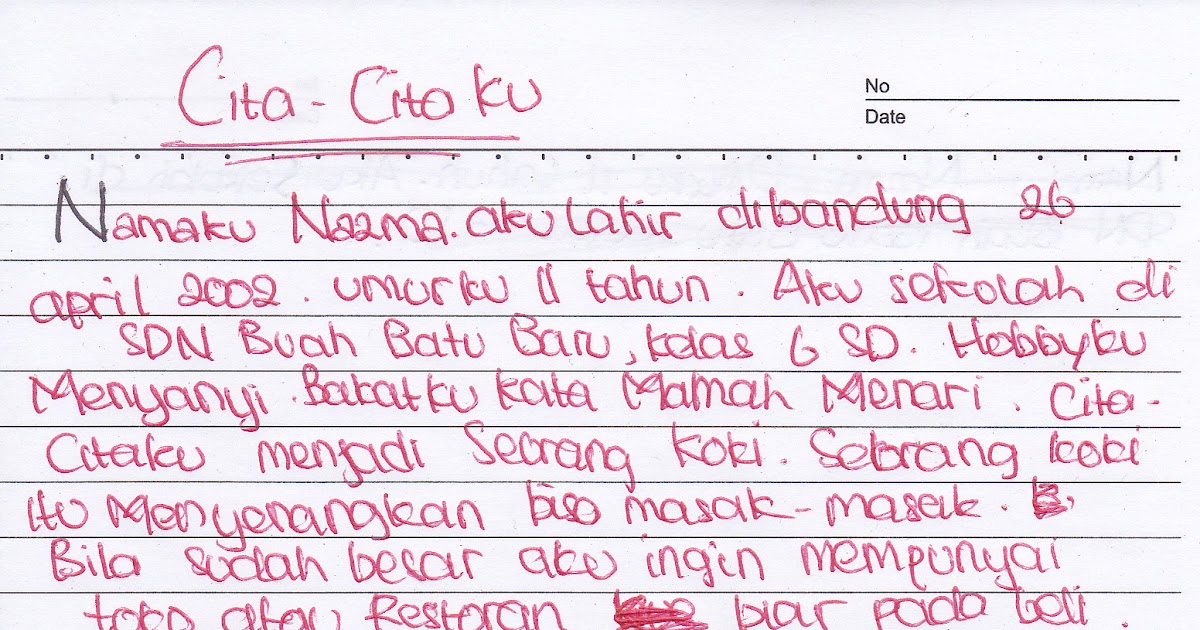 Cita-Citaku
No
Date
Namaku Nazma. aku lahir dibandung 26
april 2002. umurku 11 tahun. Aku sekolah di
SDN Buah Batu Baru, kelas 6 SD. Hobbyku
Menyanyi. Bakatku kata Mamah Menari. Cita-
Citaku menjadi Seorang koki. Seorang koki
itu Menyenangkan bisa masak-masak.
Bila sudah besar aku ingin mempunyai
toko atau Restoran biar pada beli.